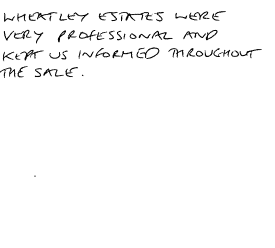 WHEATLEY ESTATES WERE
VERY PROFESSIONAL AND
KEPT US INFORMED THROUGHOUT
THE SALE.